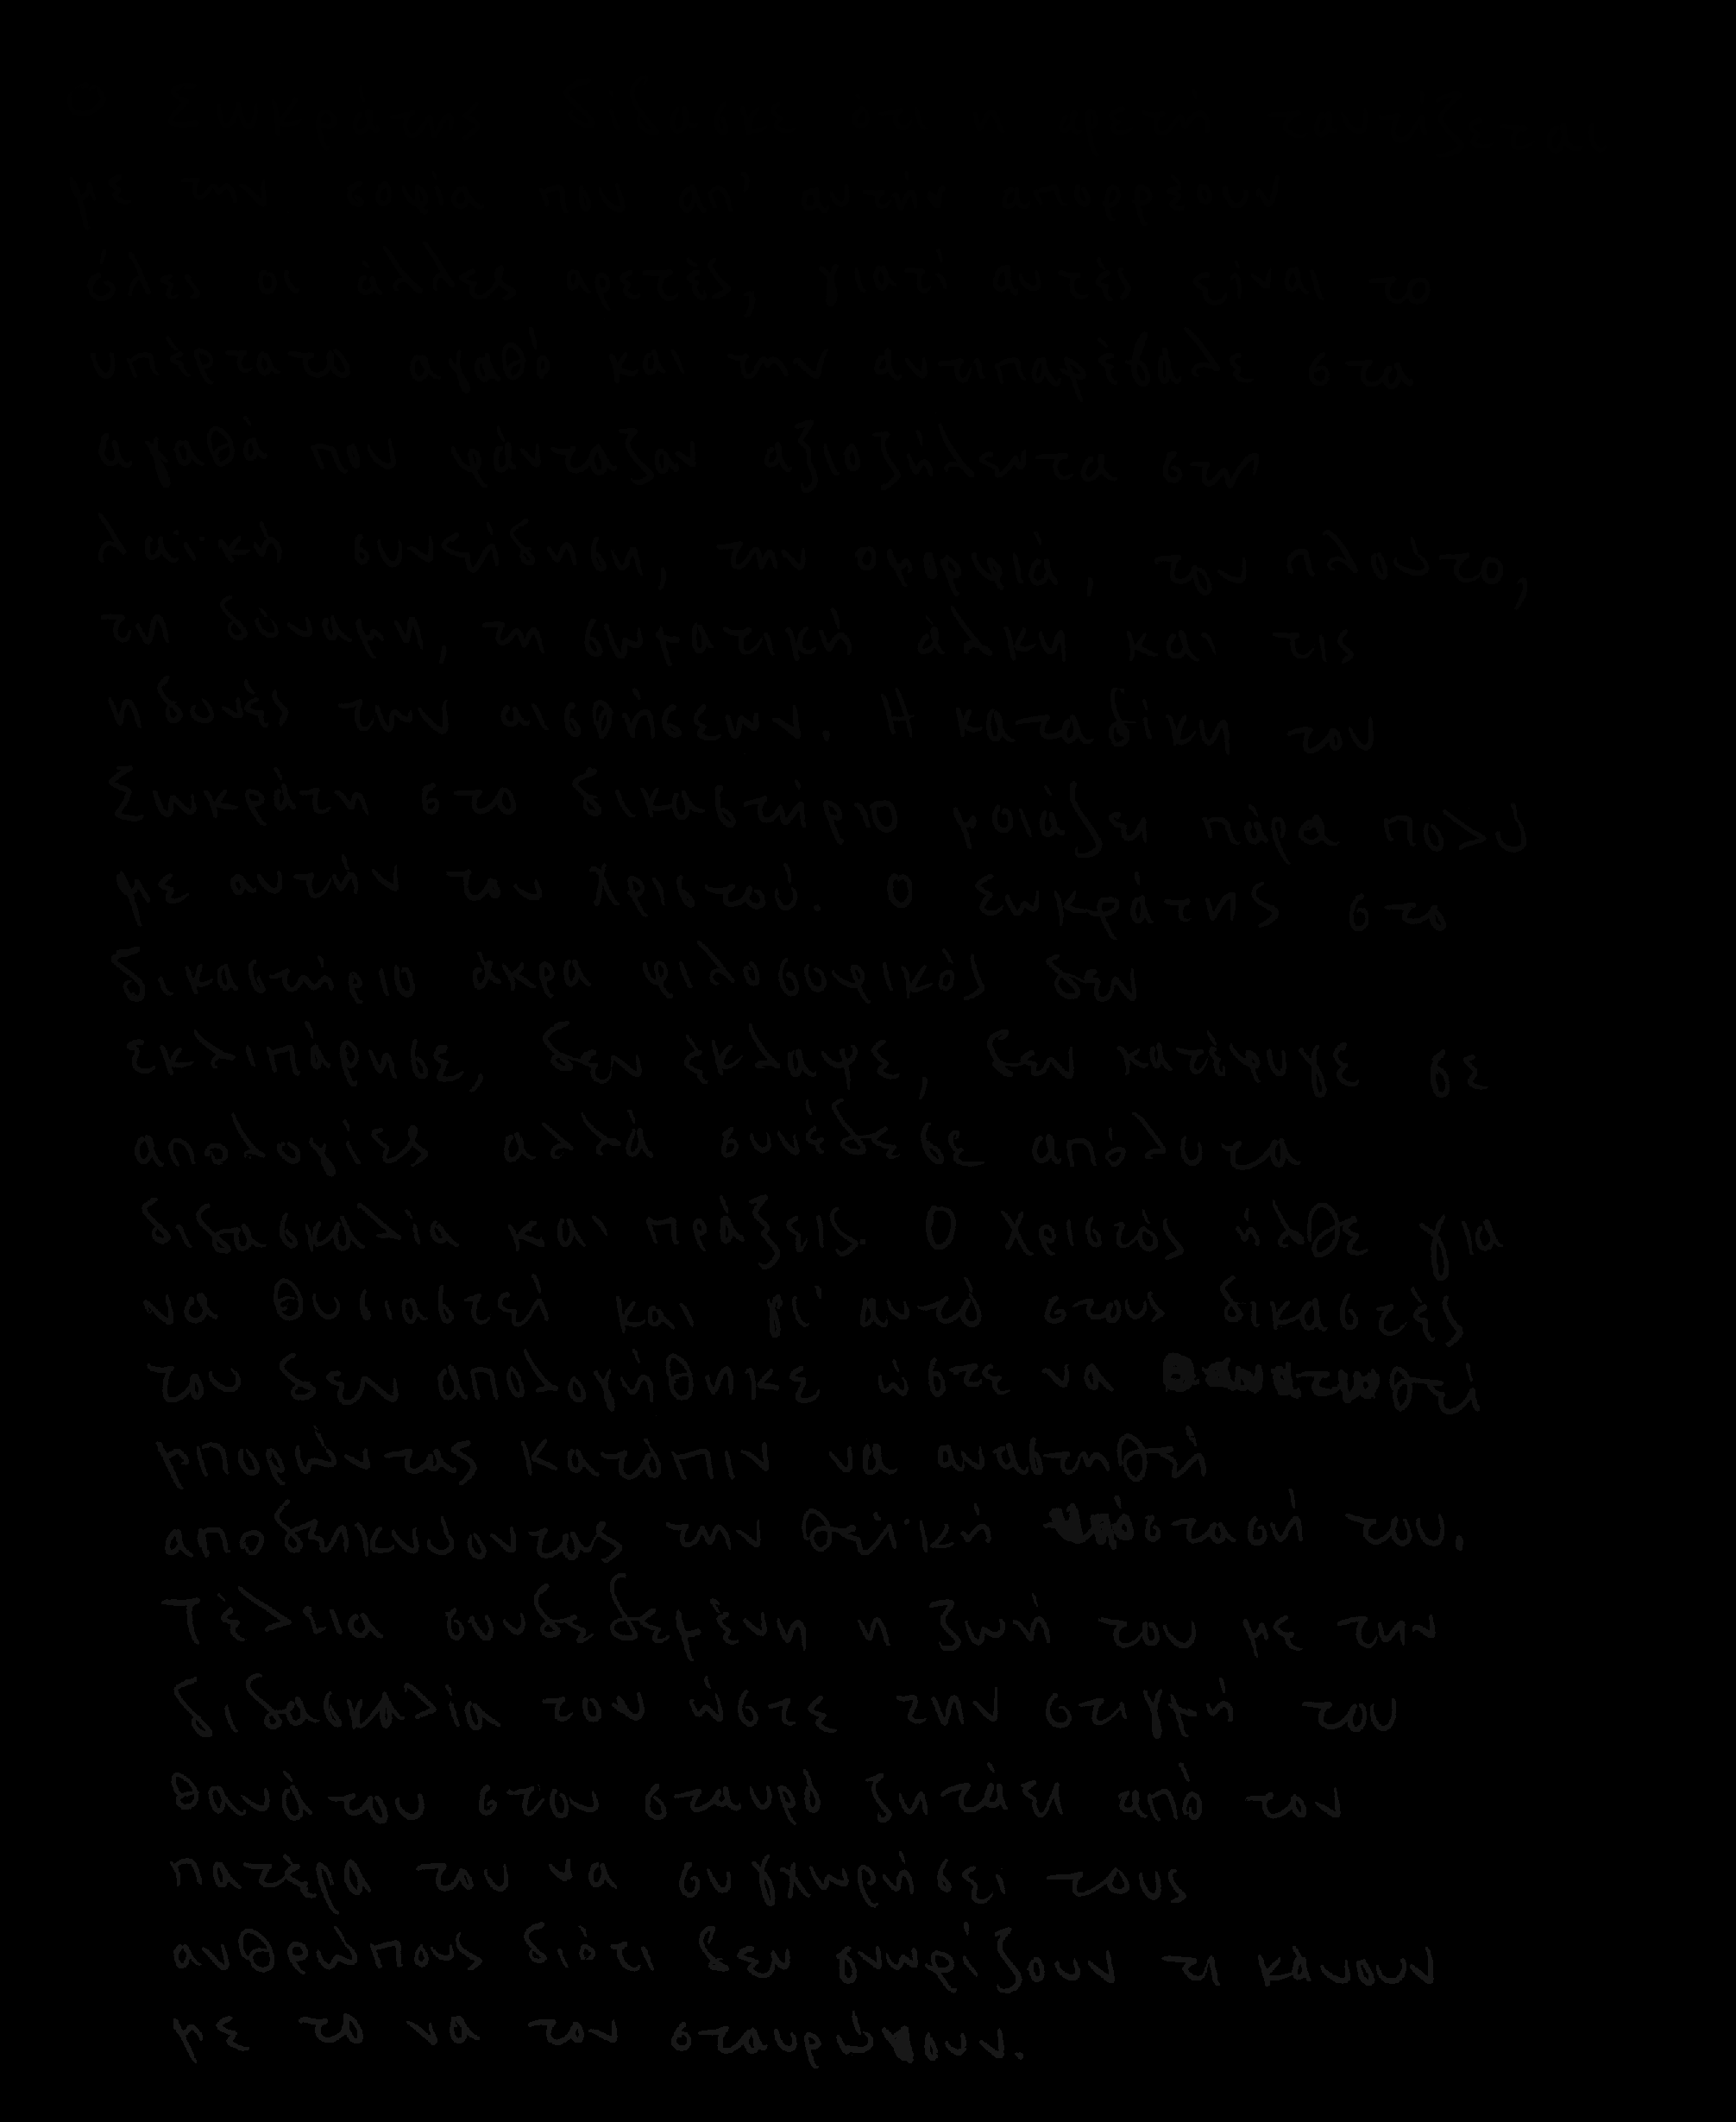 με την σοφία που απ' αυτήν απορρέουν
όλες οι άλλες αρετές, γιατί αυτές είναι το
υπέρτατο αγαθό και την αντιπαρέβαλε στα
αγαθά που φάνταζαν αξιοζήλευτα στη
λαϊκή συνείδηση, την ομορφιά, τον πλούτο,
τη δύναμη, τη σωματική άλκη και τις
ηδονές των αισθήσεων. Η καταδίκη του
Σωκράτη στο δικαστήριο μοιάζει πάρα πολύ
με αυτήν του Χριστού. Ο Σωκράτης στο
δικαστήριο άκρα φιλοσοφικός δεν
εκλιπάρησε, δεν έκλαψε, δεν κατέφυγε σε
απολογίες αλλά συνέδεσε απόλυτα
διδασκαλία και πράξεις. Ο Χριστός ήλθε για
να θυσιαστεί και γι' αυτό στους δικαστές
του δεν απολογήθηκε ώστε να θανατωθεί
μπορώντας κατόπιν να αναστηθεί
αποδεικνύοντας την θεϊκή υπόστασή του.
Τέλεια συνδεδεμένη η ζωή του με την
διδασκαλία του ώστε την στιγμή του
θανάτου στον σταυρό ζητάει από τον
πατέρα του να συγχωρήσει τους
ανθρώπους διότι δεν γνωρίζουν τι κάνουν
με το να τον σταυρώνουν.